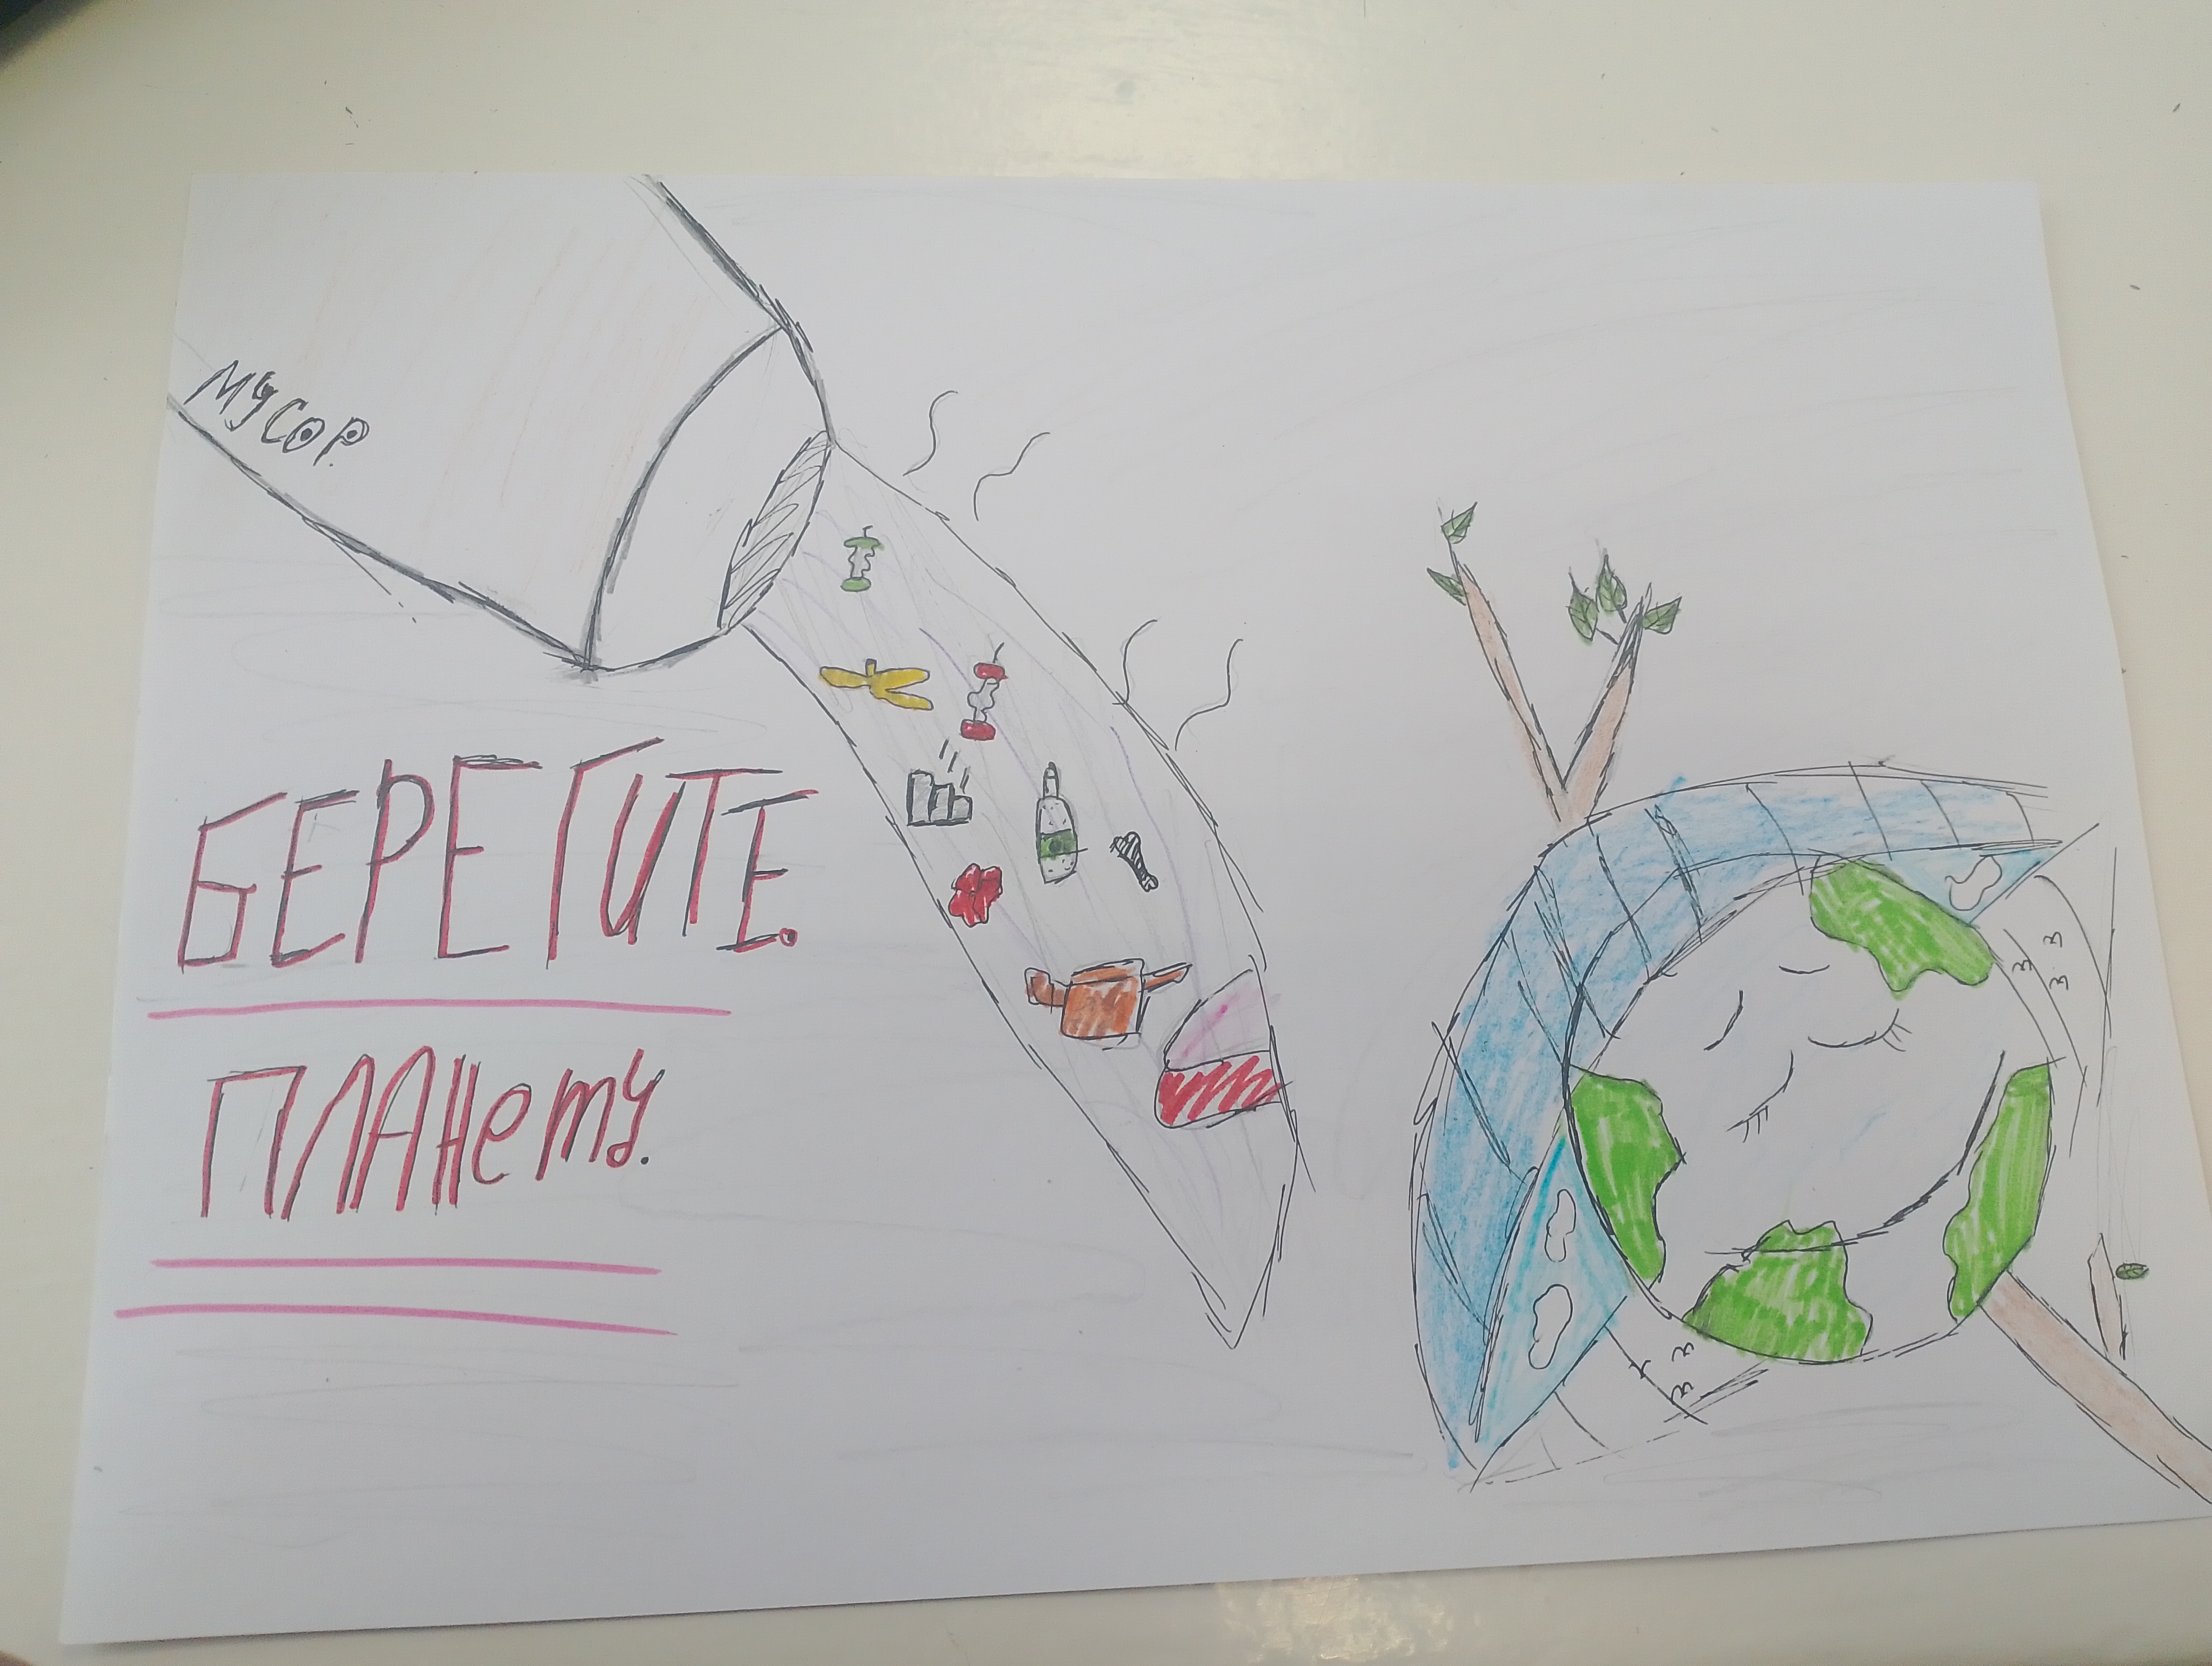 МУСОР.
БЕРЕГИТЕ.
ПЛАНету.